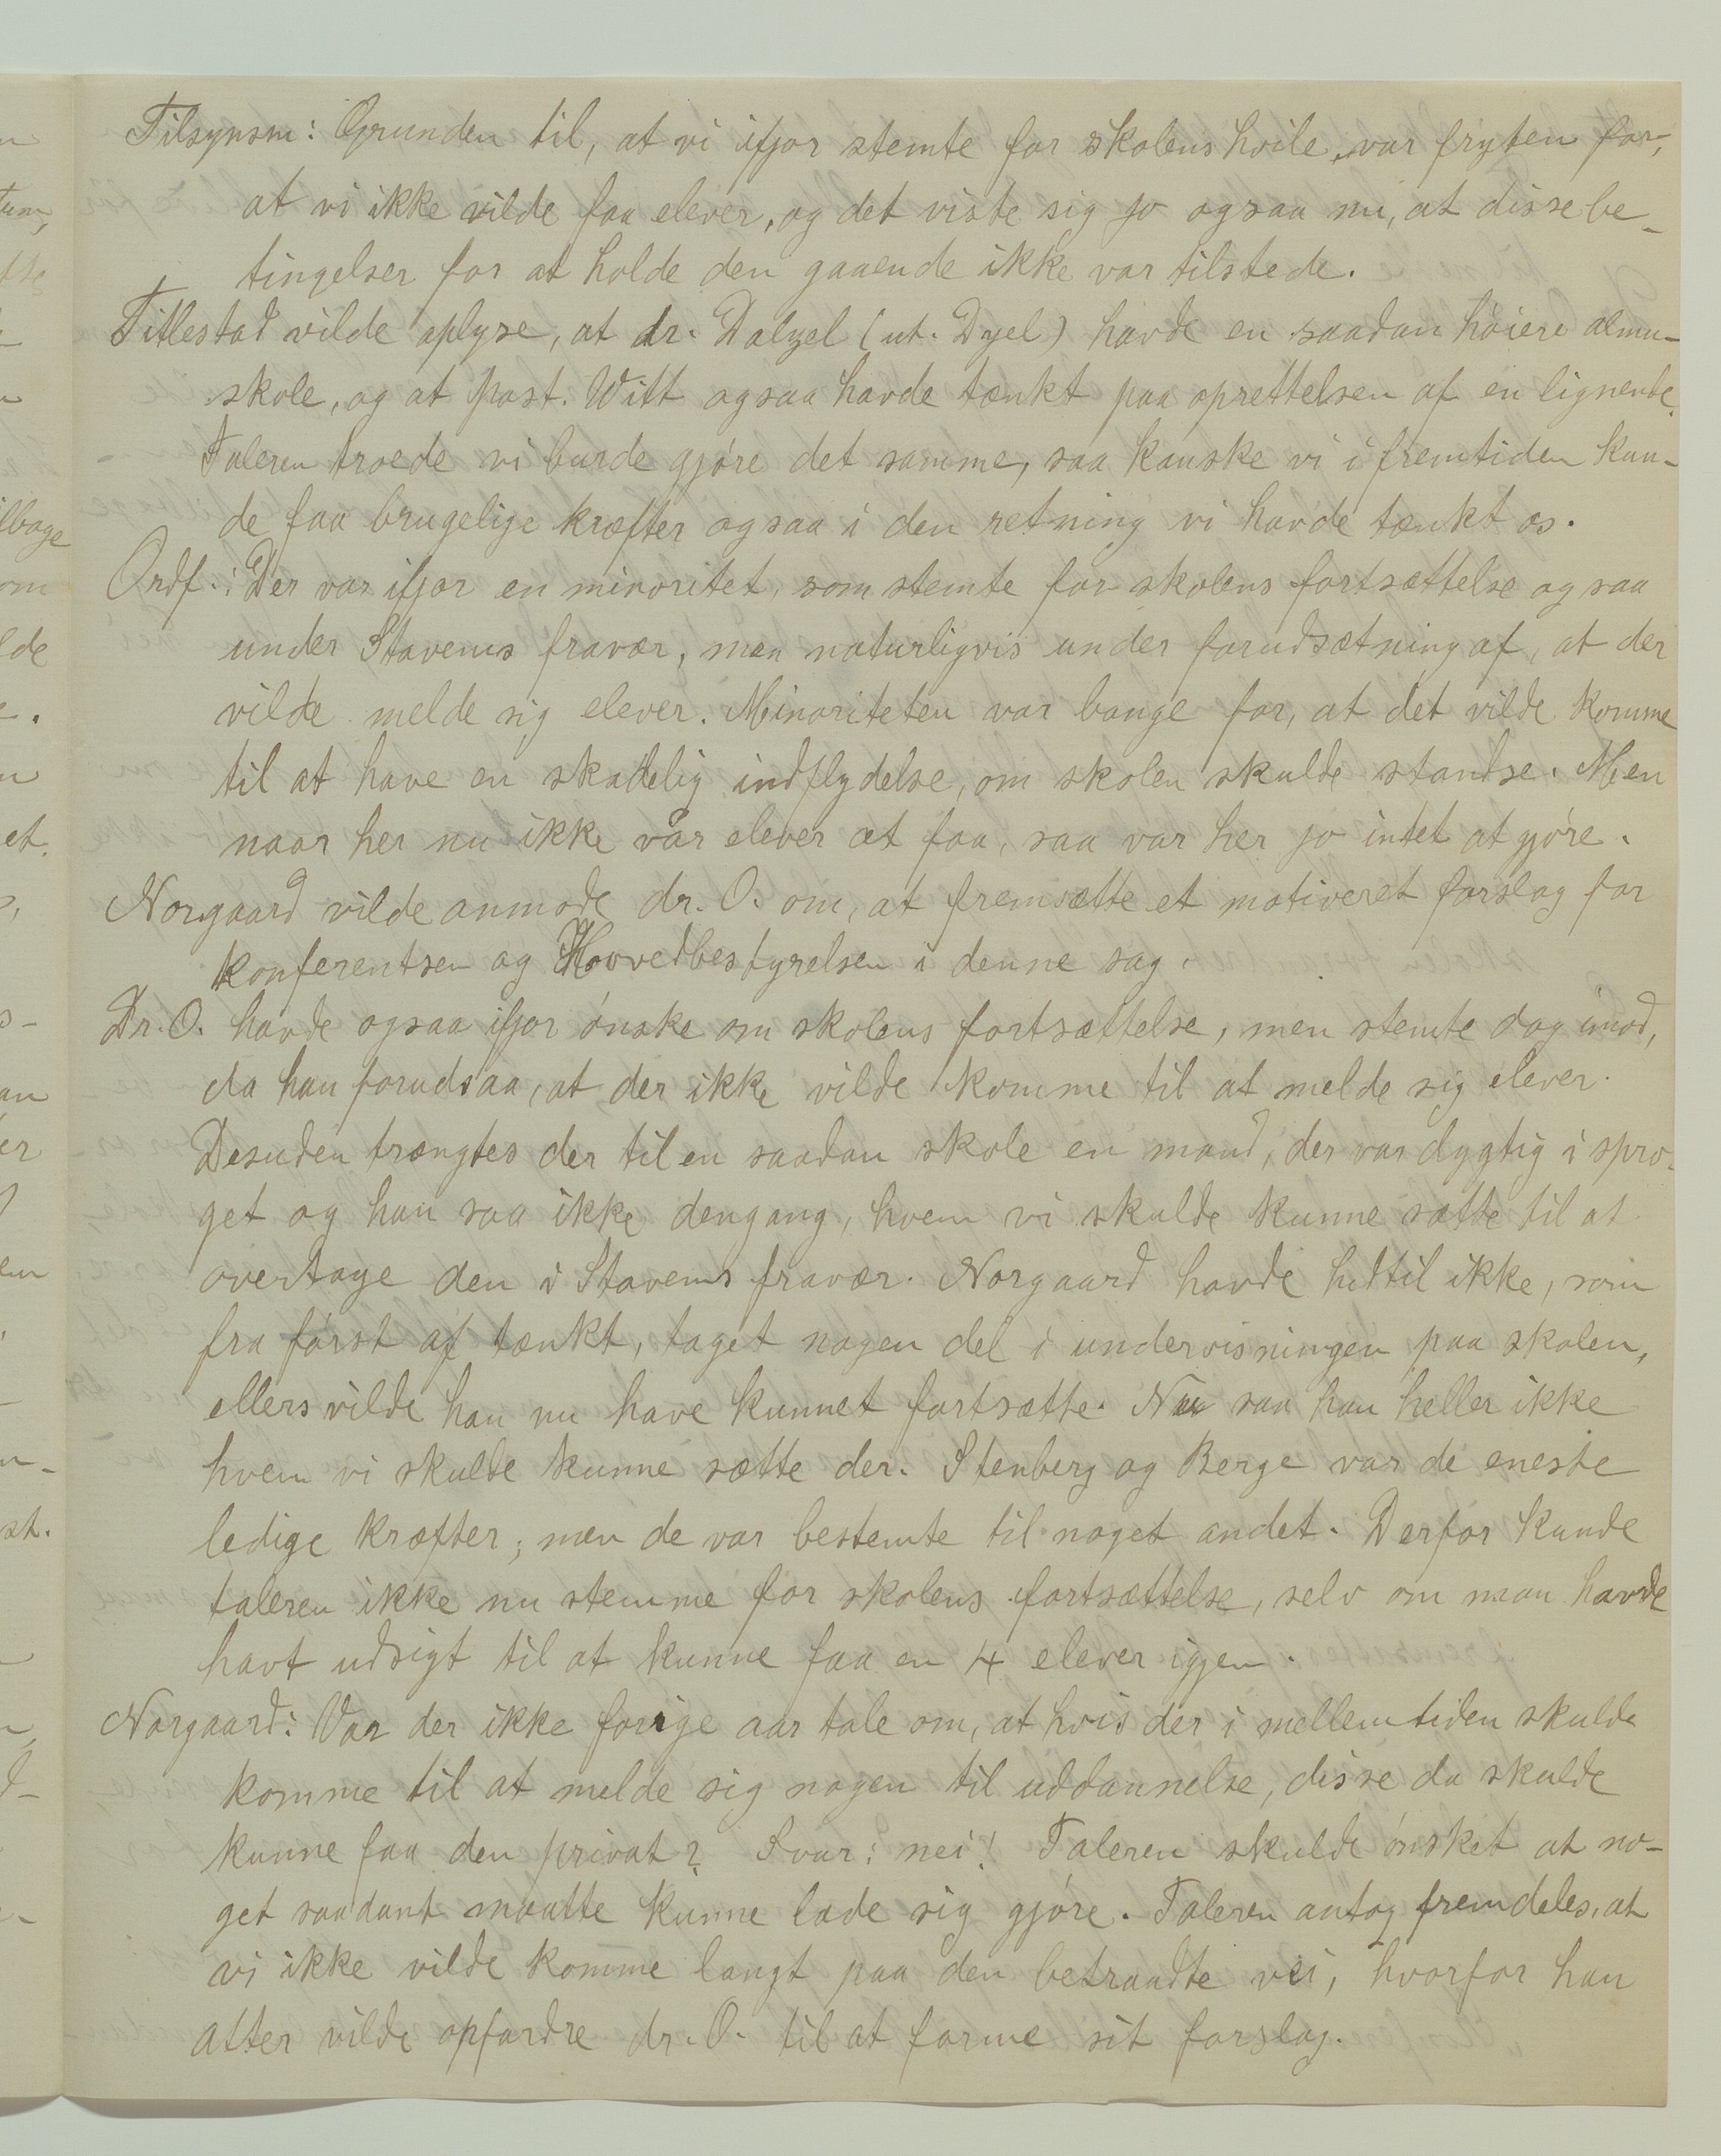 Tilsynsm: Grunden til, at vi ifjor stemte for skolens hvile, var frygten for,
at vi ikke vilde faa elever, og det viste sig jo ogsaa nu, at disse be-
tingelser for at holde den gaaende ikke var tilstede.
Titlestad vilde oplyse, at dr. Dalzel (ut. Dyel) havde en saadan høiere almu-
skole, og at past. Witt ogsaa havde tænkt paa oprettelsen af en lignende.
Taleren troede vi burde gjøre det samme, saa kanske vi i fremtiden kun-
de faa brugelige kræfter ogsaa i den retning vi havde tænkt os.
Ordf.: Der var ifjor en minoritet, som stemte for skolens fortsættelse ogsaa
under Stavems fravær, men naturligvis under forudsætning af, at der
vilde melde sig elever. Minoriteten var bange for, at det vilde komme
til at have en skadelig indflydelse, om skolen skulde standse. Men
naar her nu ikke var elever at faa, saa var her jo intet at gjøre.
Norgaard vilde anmode dr. O. om, at fremsætte et motiveret forslag for
konferentsen og Hovedbestyrelsen i denne sag.
Dr. O. havde ogsaa ifjor ønske om skolens fortsættelse, men stemte dog imod,
da han forudsaa, at der ikke vilde komme til at melde sig elever.
Desuden trængtes der til en saadan skole en mand, der var dygtig i spro-
get og han saa ikke dengang, hvem vi skulde kunne sætte til at
overtage den i Stavems fravær. Norgaard havde hidtil ikke, som
fra først af tænkt, taget nogen del i undervisningen paa skolen,
ellers vilde han nu have kunnet fortsætte. Nu saa han heller ikke
hvem vi skulde kunne sætte der. Stenberg og Berge var de eneste
ledige kræfter; men de var bestemte til noget andet. Derfor kunde
taleren ikke nu stemme for skolens fortsættelse, selv om man havde
havt udsigt til at kunne faa en 4 elever igjen.
Norgaard: Var der ikke forige aar tale om, at hvis der i mellemtiden skulde
komme til at melde sig nogen til uddannelse, disse da skulde
kunne faa den privat? Svar: nei! Taleren skulde ønsket at no-
get saadant maatte kunne lade sig gjøre. Taleren antog fremdeles, at
vi ikke vilde komme langt paa den betraadte vei, hvorfor han
atter vilde opfordre dr. O. til at forme sit forslag.